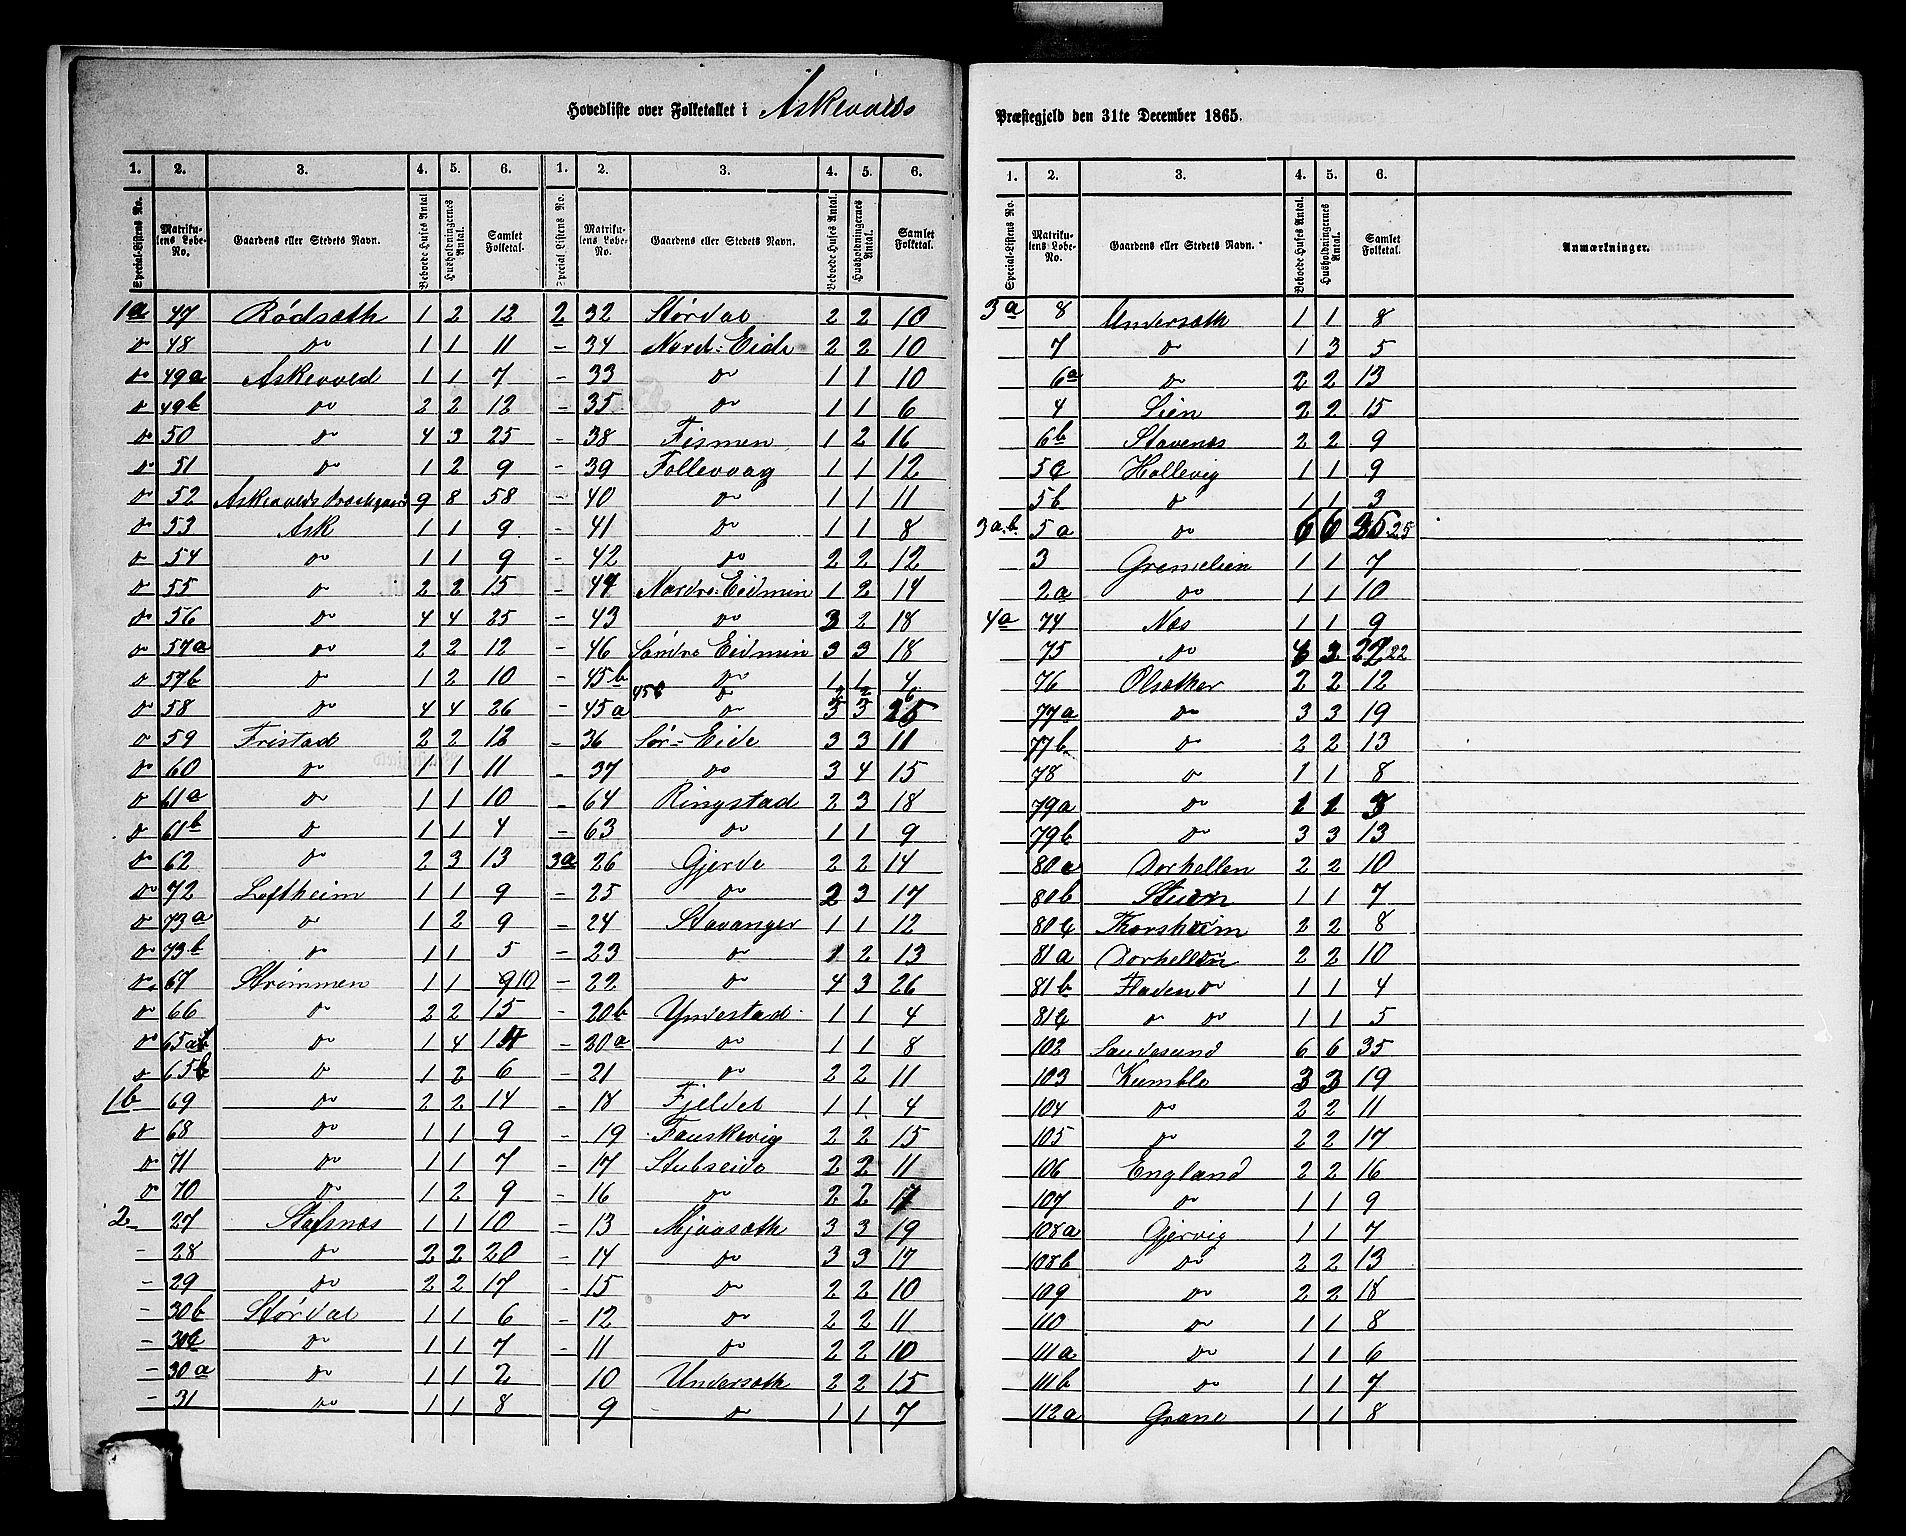 Hovedliste over Folketallet i Askevolds
Præstegjeld den 31te December 1865.
1. 2. 3. 4. 5. 6. 1. 2. 3. 4. 5. 6.
Special-Listens No. Matrikulens Løbe-No. Gaardens eller Stedets Navn. Beboede Huses Antal Husholdningernes Antal. Samlet Folketal. Special-Listens No. Matrikulens Løbe-No. Gaardens eller Stedets Navn. Beboede Huses Antal. Husholdningernes Antal. Samlet Folketal.
1a 47 Rödsæth 1 2 12 2 32 Stördal 2 2 10
do 48 do 1 1 11 - 34 Nord-Eide 2 2 10
do 49a Askevold 1 1 7 - 33 do 1 1 10
do 49b do 2 2 12 - 35 do 1 1 6
do 50 do 4 3 25 - 38 Fismen 1 2 16
do 51 do 1 2 9 - 39 Follevaag 1 1 12
do 52 Askevolds Præstegaard 9 8 58 - 40 do 1 1 11
do 53 Ask 1 1 9 - 41 do 1 1 8
do 54 do 1 1 9 - 42 do 2 2 12
do 55 do 2 2 15 - 44 Nordre-Eidmin 1 2 14
do 56 do 4 4 25 - 43 do 3 2 18
do 57a do 2 2 12 - 46 Söndre Eidmin 3 3 18
do 57b do 1 2 10 - 45b do 1 1 4
45c do 2 2 6
do 58 do 4 4 26 - 45a do 3 3 25
do 59 Fristad 2 2 12 - 36 Sör-Eide 3 3 11
do 60 do 1 1 11 - 37 do 3 4 15
do 61a do 1 1 10 - 64 Ringstad 2 3 18
do 61b do 1 1 4 - 63 do 1 1 9
do 62 do 2 3 13 3a 26 Gjerde 2 2 14
do 72 Loftheim 1 1 9 - 25 do 2 3 17
do 73a do 1 2 9 - 24 Stavanger 1 1 12
do 73b do 1 1 5 - 23 do 1 2 13
do 67 Strömmen 1 1 10 - 22 do 4 3 26
do 66 do 2 2 15 - 20b Yndestad 1 1 4
do 65a do 1 4 - 20a do 1 1 8
do 65b do 1 2 6 - 21 do 2 2 11
1b 69 do 2 2 14 - 18 Fjeldet 1 1 4
do 68 do 1 1 9 - 19 Fauskevig 2 2 15
do 71 do 1 1 7 - 17 Stubseide 2 2 11
do 70 do 1 2 9 - 16 do 2 2 17
2 27 Stafsnæs 1 1 10 - 13 Mjaasæth 3 3 19
- 28 do 2 2 20 - 14 do 3 3 17
- 29 do 2 2 17 - 15 do 2 2 10
- 30b Stördal 1 1 6 - 12 do 2 2 11
- 30c do 1 1 7 - 11 do 2 2 10
- 30a do 1 1 2 10 Undersæth 2 2 15
- 31 do 1 1 8 9 do 1 1 7
1. 2. 3. 4. 5. 6.
Special-Listens No. Matrikulens Løbe-No. Gaardens eller Stedets Navn. Beboede Huses Antal. Husholdningernes Antal. Samlet Folketal. Anmærkninger.
3a 8 Undersæth 1 1 8
7 do 1 3 5
6a do 2 2 13
4 Lien 2 2 15
6b Stavenæs 2 2 9
5c Hollevig 1 1 9
5b do 1 1 3
3a.b. 5a do 6 6 25
3 Grimelien 1 1 7
2a do 1 1 10
4a 74 Næs 1 1 9
75 do 4 3 22 22
76 Olsæther 2 2 12
77a do 3 3 19
77b do 2 2 13
78 do 1 1 8
79a do 1 1 3
79b do 3 3 13
80a Dorhellen 2 2 10
80b Stuen 1 1 7
80c Thorsheim 2 2 8
81a Dorhellen 2 2 10
81b Fladen do 1 1 4
81c do do 1 1 5
102 Sandesund 6 6 35
103 Kumble 3 3 19
104 do 2 2 11
105 do 2 2 17
106 England 2 2 16
107 do 1 1 9
108a Gjervig 1 1 7
108b do 2 2 13
109 do 2 2 18
110 do 1 1 8
111a do 1 1 6
111b do 1 1 7
112a Grane 1 1 8